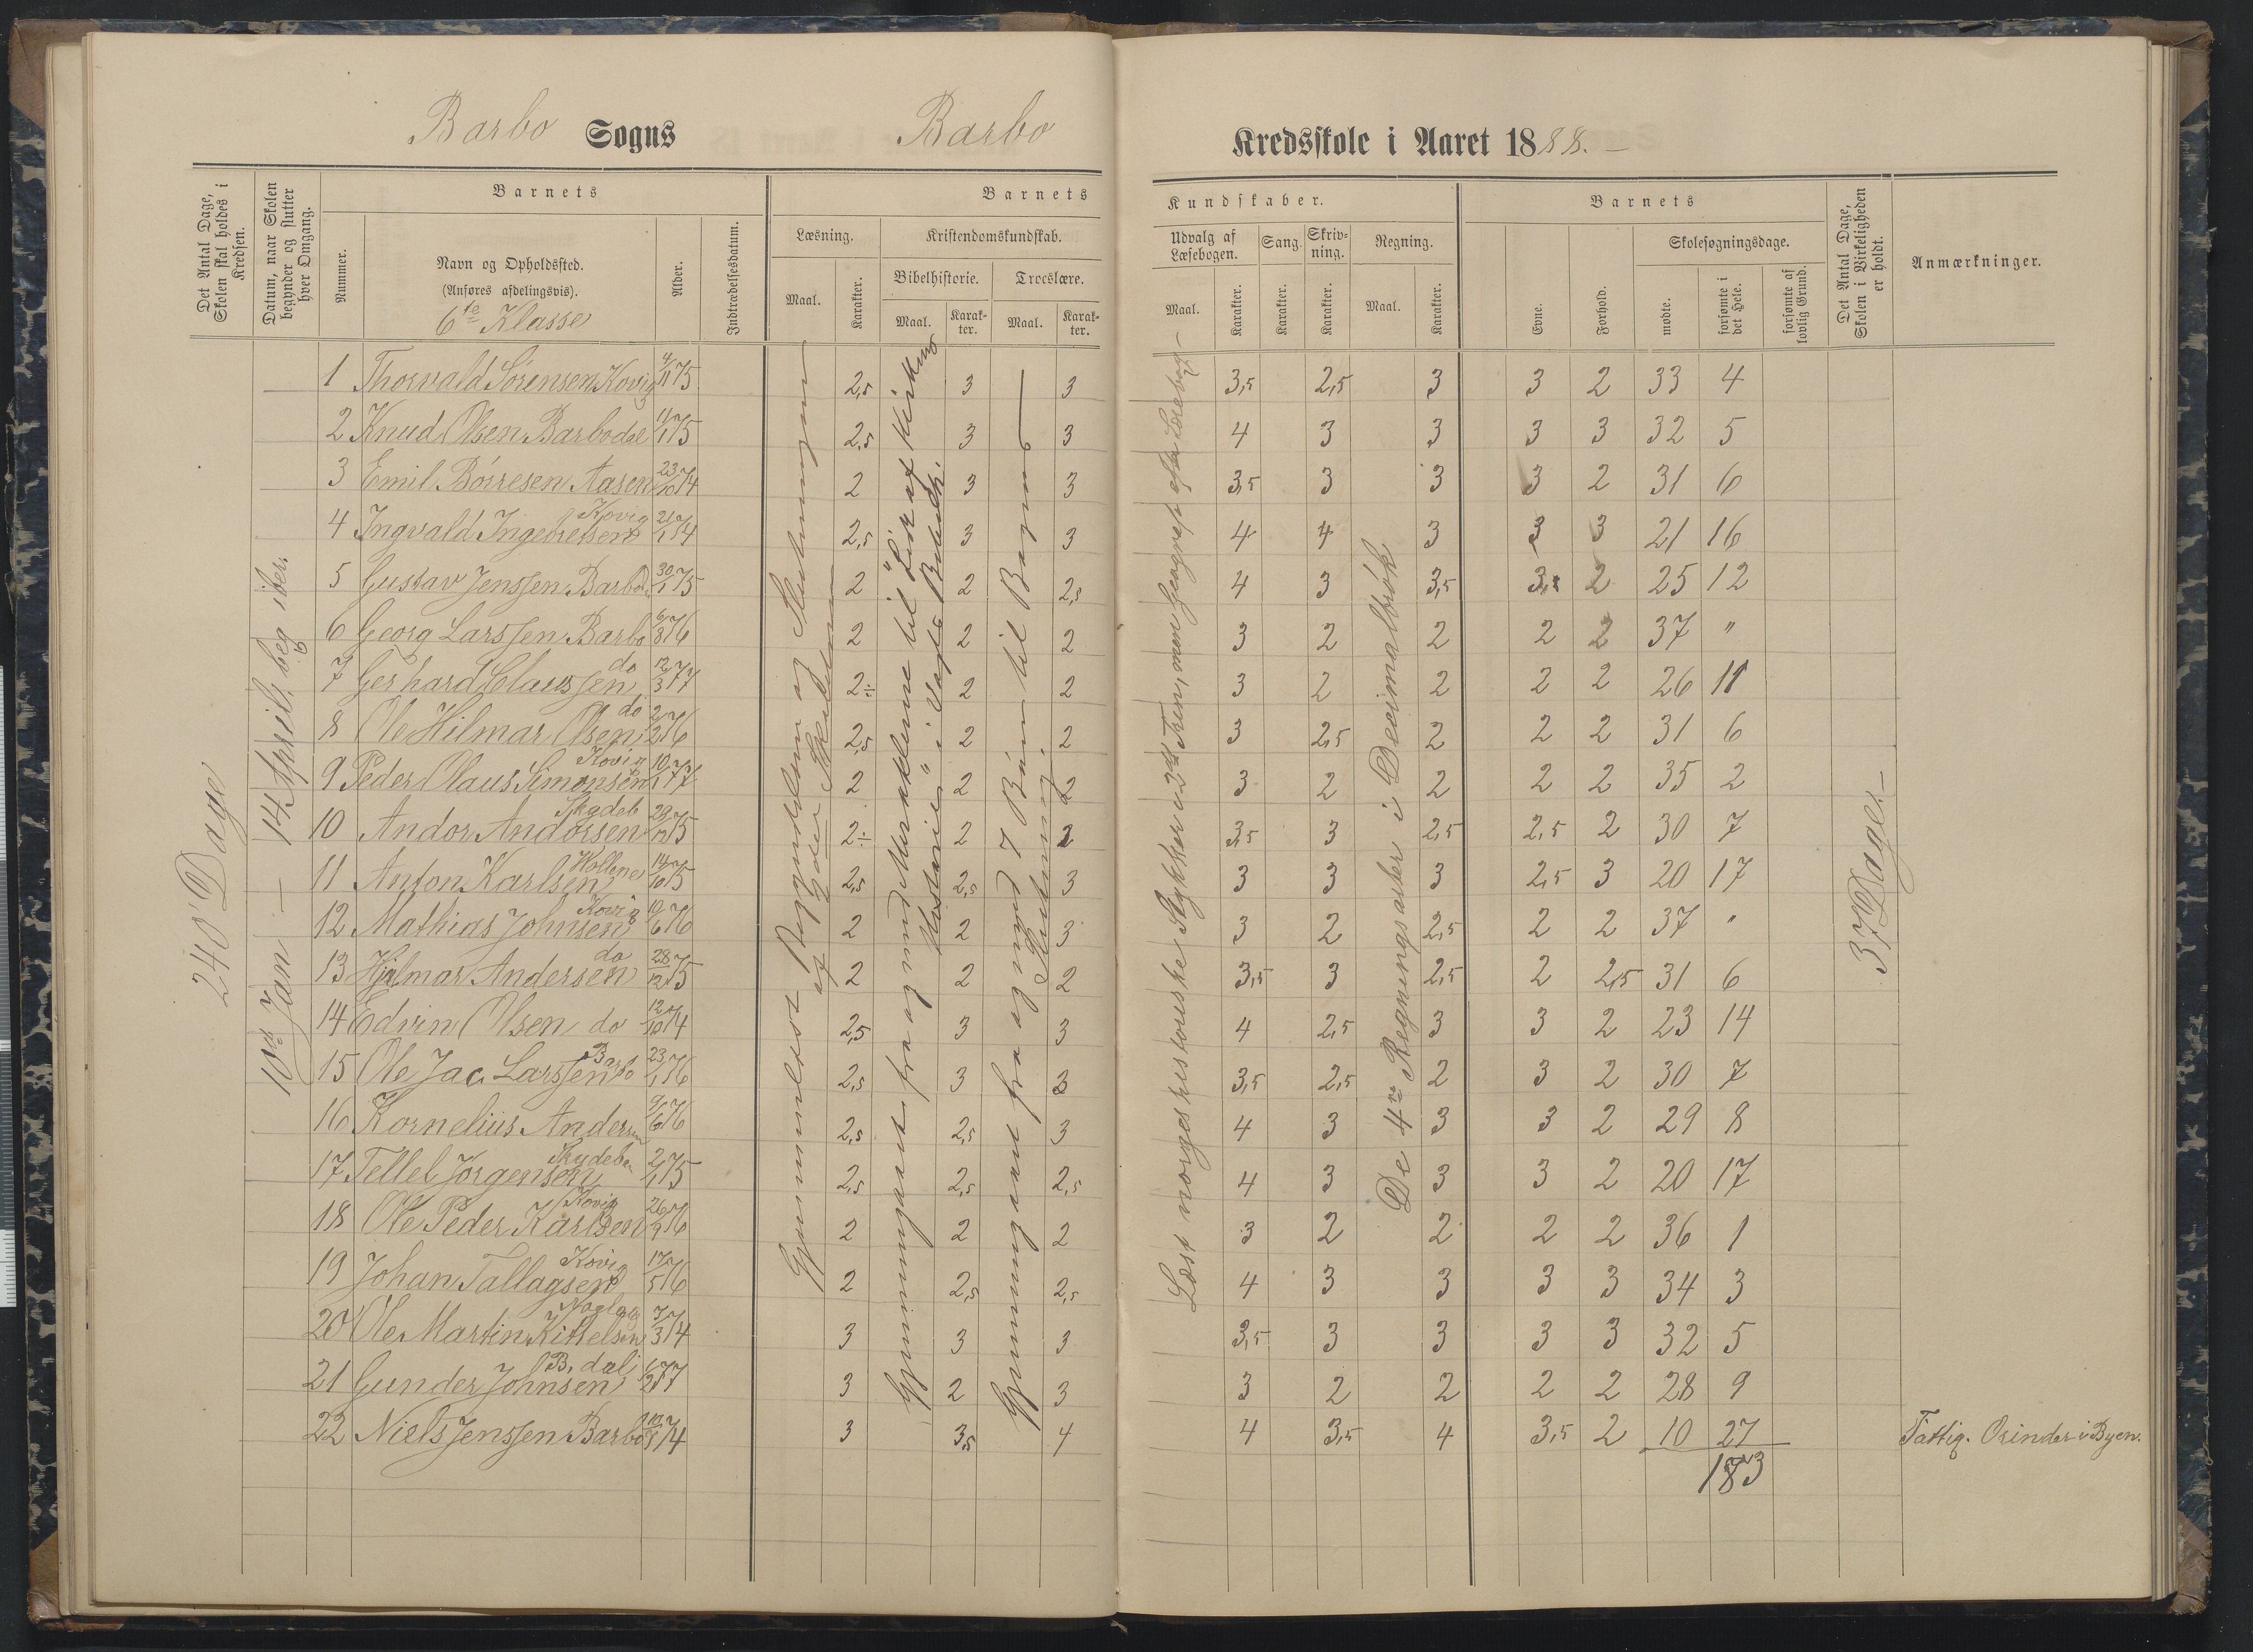 Barbo Sogns Barbo Kredsskole i Aaret 1888. —
Det Antal Dage, Skolen skal holdes i Kredsen.
Datum, naar Skolen begynder og slutter hver Omgang.
Barnets
Nummer.
Navn og Opholdssted.
(Anføres afdelingsvis).
6te Klasse
Alder.
Indtrædelsesdatum.
Barnets Kundskaber.
Læsning.
Maal.
Karakter.
Kristendomskundskab.
Bibelhistorie.
Maal.
Karakter.
Troeslære.
Maal.
Karakter.
Udvalg af Læsebogen.
Maal.
Karakter.
Sang.
Karakter.
Skrivning.
Karakter.
Regning.
Maal.
Karakter.
Barnets
Evne.
Forhold.
Skolesøgningsdage.
mødte.
forsømte i det Hele.
forsømte af lovlig Grund.
Det Antal Dage, Skolen i Virkeligheden er holdt.
Anmærkninger.
240 Dage
10de Jan — 14 April, beg iber.
Gjennemlæst Begyndelsen og Slutningen
af
Gjennemgaaet fra og med Miraklerne til "Lidt af Kirkens
Historie" i Vogts Bibelh.
Gjennemgaaet fra og med 7 Bøn til Bogens
Slutning.
Læst norgeshistoriske Stykker i 2den Læsebog
De 4re Regningsarter i Decimalbrøk
37 Dage. —
1 Thorvald Sørensen Kovig 4/11 75 2,5 3 3 3,5 2,5 3 3 2 33 4
2 Knud Olsen Barbodal 11/1 75 2,5 3 3 4 3 3 3 3 32 5
3 Emil Börresen Aasen 23/10 74 2 3 3 3,5 3 3 3 2 31 6
4 Ingvald Ingebretsen Kovig 21/1 74 2,5 3 3 4 4 3 3 3 21 16
5 Gustav Jenssen Barbo 30/1 75 2 2 2,5 4 3 3,5 3,5 2 25 12
6 Georg Larssen Barbo 6/8 76 2 2 2 3 2 2 2 2 37 "
7 Gerhard Claussen do 12/3 77 2÷ 2 2 3 2 2 2 2 26 11
8 Ole Hilmar Olsen do 2/2 76 2,5 2 2 3 2,5 2 2 2 31 6
9 Peder Olaus Simonsen Kovig 10/1 77 2 2 2 3 2 2 2 2 35 2
10 Andor Andorsen Skydeb 29/12 75 2÷ 2 2 3,5 3 2,5 2,5 2 30 7
11 Anton Karlsen Hollene 14/10 75 2,5 2,5 3 3 3 3 2,5 3 20 17
12 Mathias Johnsen Kovig 19/6 76 2 2 3 3 2 2,5 2 2 37 "
13 Hjalmar Andersen do 28/12 75 2 2 2 3,5 3 2,5 2 2,5 31 6
14 Edvin Olsen do 12/10 74 2,5 3 3 4 2,5 3 3 2 23 14
15 Ole Jac. Larssen Barbo 23/1 76 2,5 3 3 3,5 2,5 2 3 2 30 7
16 Kornelius Andersen 9/6 76 2,5 2,5 3 4 3 3 3 2 29 8
17 Tellef Jørgensen Skydeb 2/1 75 2,5 2,5 2,5 4 3 3 3 2 20 17
18 Ole Peder Karlsen Kovig 26/2 76 2 2 2 3 2 2 2 2 36 1
19 Johan Tallagsen Kovig 17/5 76 2 2,5 2,5 4 3 3 3 3 34 3
20 Ole Martin Kittelsen 7/3 74 3 3 3 3,5 3 3 3 3 32 5
21 Gunder Johnsen B, dal 77 3 2 3 3 2 2 2 2 28 9
22 Niels Jenssen Barbo 74 3 3,5 4 4 3,5 4 3,5 2 10 27 Fattig. Ærinder i Byen.
183